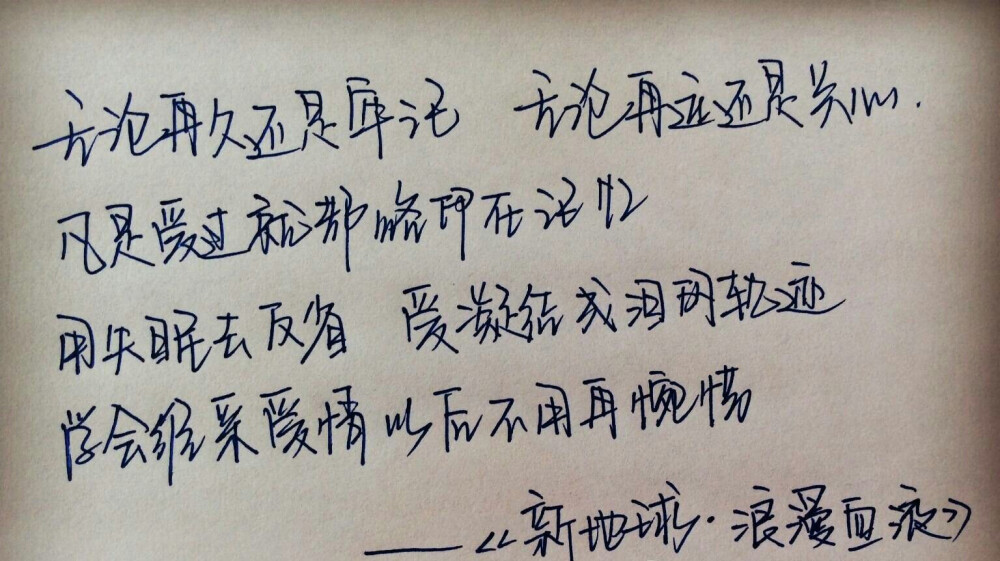 无论再久还是牵记 无论再远还是关心.
凡是爱过就都烙印在记忆
用失眠去反省 爱凝结成泪的轨迹
学会经采爱情以后不用再惋惜
——《新地球·浪漫血液》